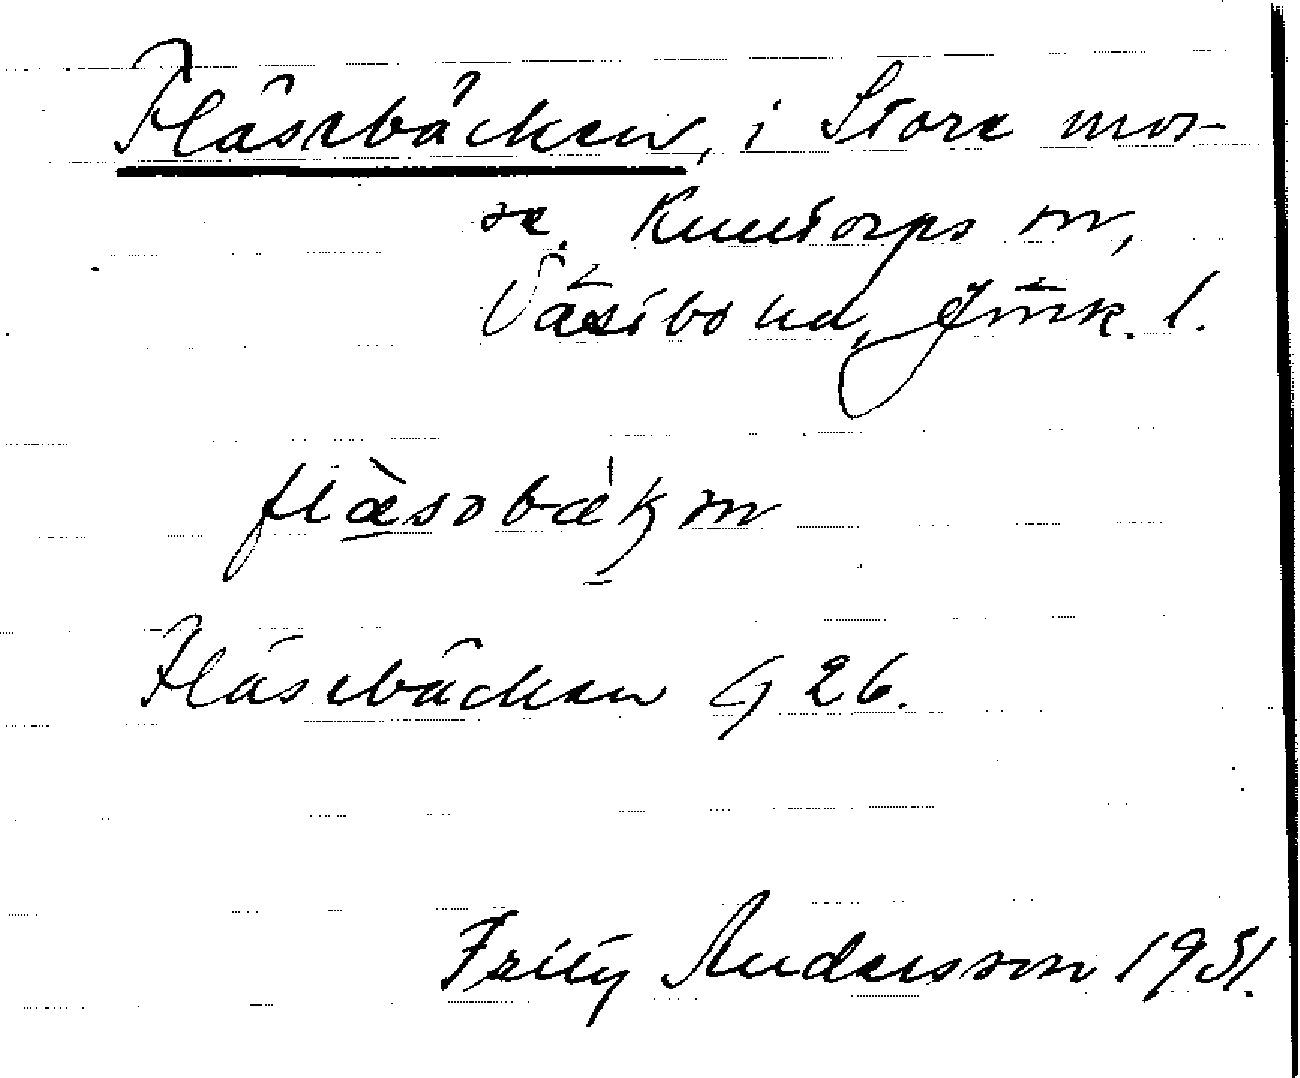 Fläsebäcken, i Stora mos-
se. Kuutorps
Västbo hd, Jönk. l.
flæ̀sobæ̍kₘ
Fläsebäcken G 26.
Frity Andersson 1931.